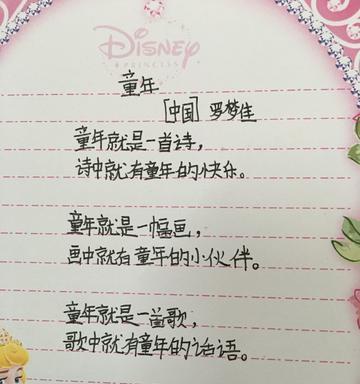 Disney
PRINCESS
童年
[中国] 罗梦佳
童年就是一首诗，
诗中就有童年的快乐。
童年就是一幅画，
画中就有童年的小伙伴。
童年就是一首歌，
歌中就有童年的话语。